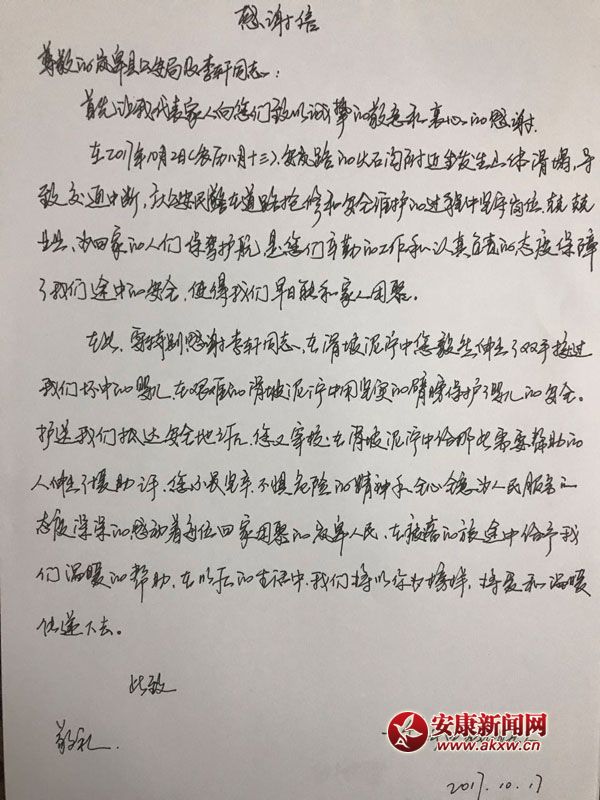 感谢信
尊敬的岚皋县公安局及李轩同志：
首先让我代表家人向您们致以诚挚的敬意和衷心的感谢.
在2017年10月2日(农历八月十三)、安岚路的火石沟附近突发生山体滑塌,导
致交通中断,公安民警在道路抢修和安全维护的过程中坚守岗位,兢兢
业业、为回家的人们保驾护航,是您们辛勤的工作和认真负责的态度保障
了我们途中的安全,使得我们早日能和家人团聚。
在此,要特别感谢李轩同志,在滑坡泥泞中您毅然伸出了双手接过
我们怀中的婴儿,在艰难的滑坡泥泞中用坚实的臂膀保护了婴儿的安全。
护送我们抵达安全地带后,您又穿梭在滑坡泥泞中给那些需要帮助的
人伸出了援助之手,您不畏艰辛、不惧危险的精神和全心全意为人民服务的
态度深深的感动着每位回家团聚的岚皋人民,在被困的旅途中给予我
们温暖的帮助,在以后的生活中,我们将以你为榜样,将爱和温暖
传递下去。
此致
敬礼.
安康新闻网
www.akxw.cn
2017.10.17